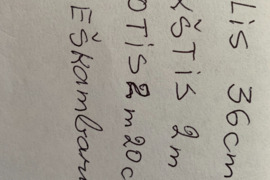 LIS 36cm
KŠTIS 2m
OTIS 2m20c
EŠKambar